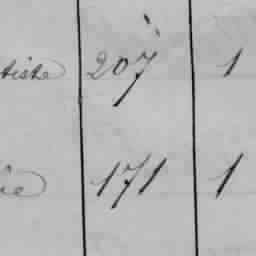 tiste 207 1
ie 171 1